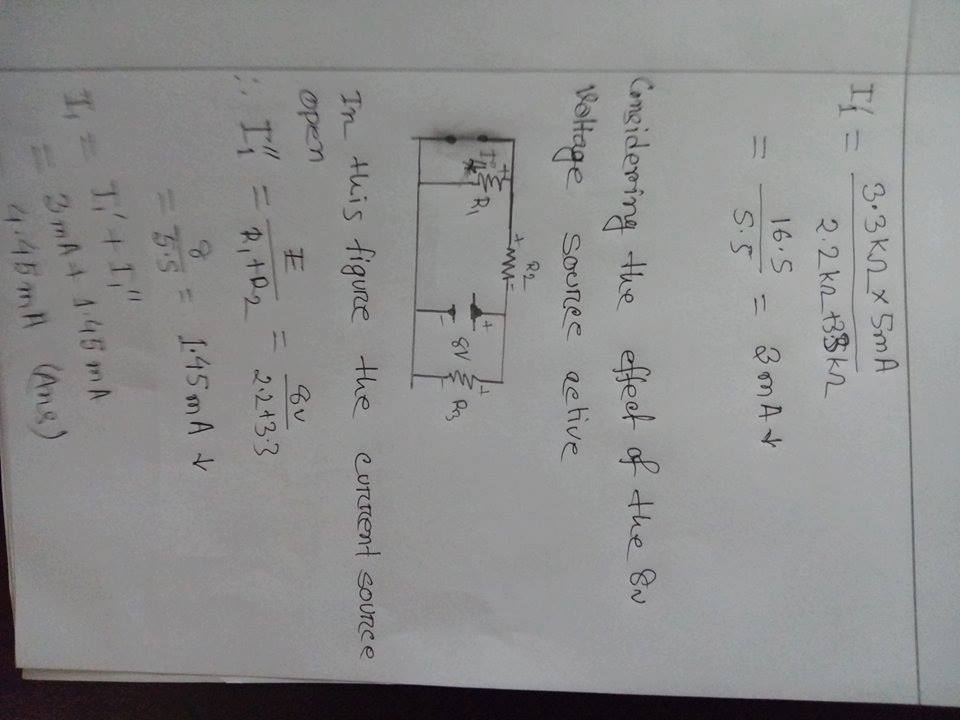 I₁' = 3.3kΩ × 5mA / 2.2kΩ+3.3kΩ
= 16.5 / 5.5 = 3 mA ↓
Considering the effect of the 8v
voltage source active
I₁" R₁ + R₂ - + 8V - + R₃ -
In this figure the current source
open
∴ I₁" = E / R₁+R₂ = 8v / 2.2+3.3
= 8 / 5.5 = 1.45 mA ↓
I₁ = I₁' + I₁"
= 3mA + 1.45 mA
= 4.45mA (Ans)